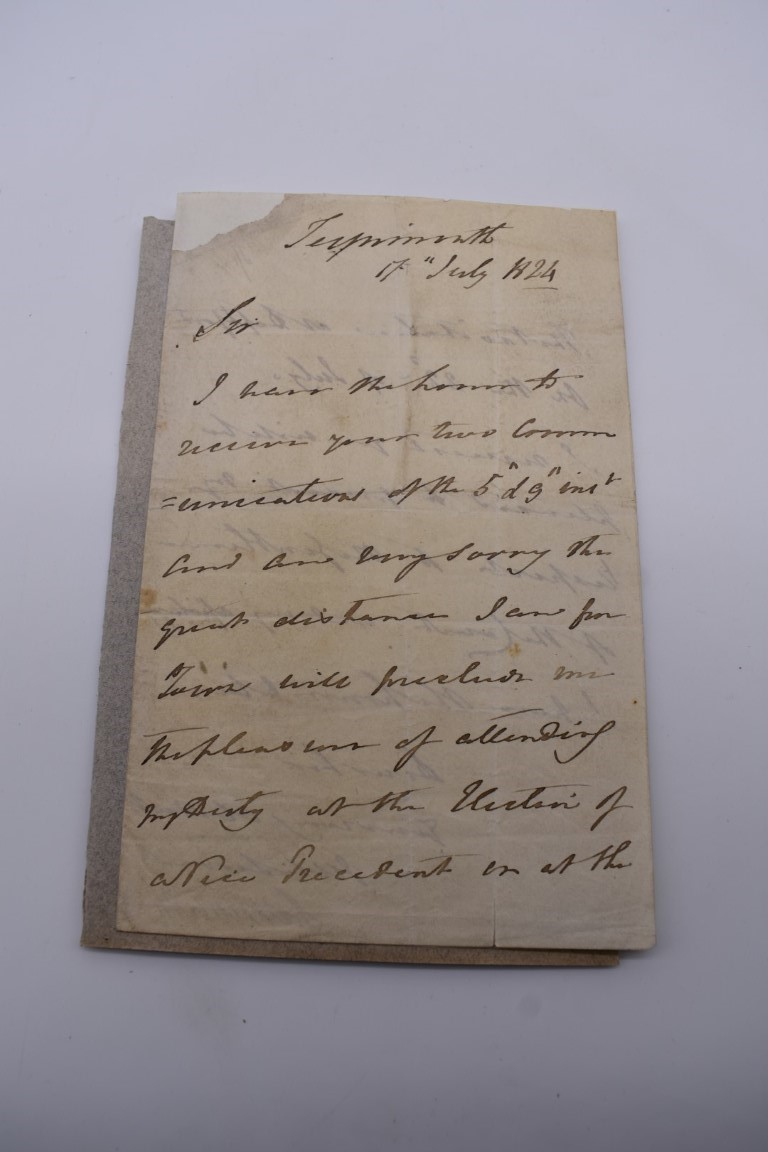 Teignmouth
17" July 1824
Sir
I have the honor to
receive your two Comm
=unications of the 5" & 9" inst
and am very sorry the
great distance I am from
Town will preclude me
the pleasure of attending
my Duty at the Election of
a Vice President or at the